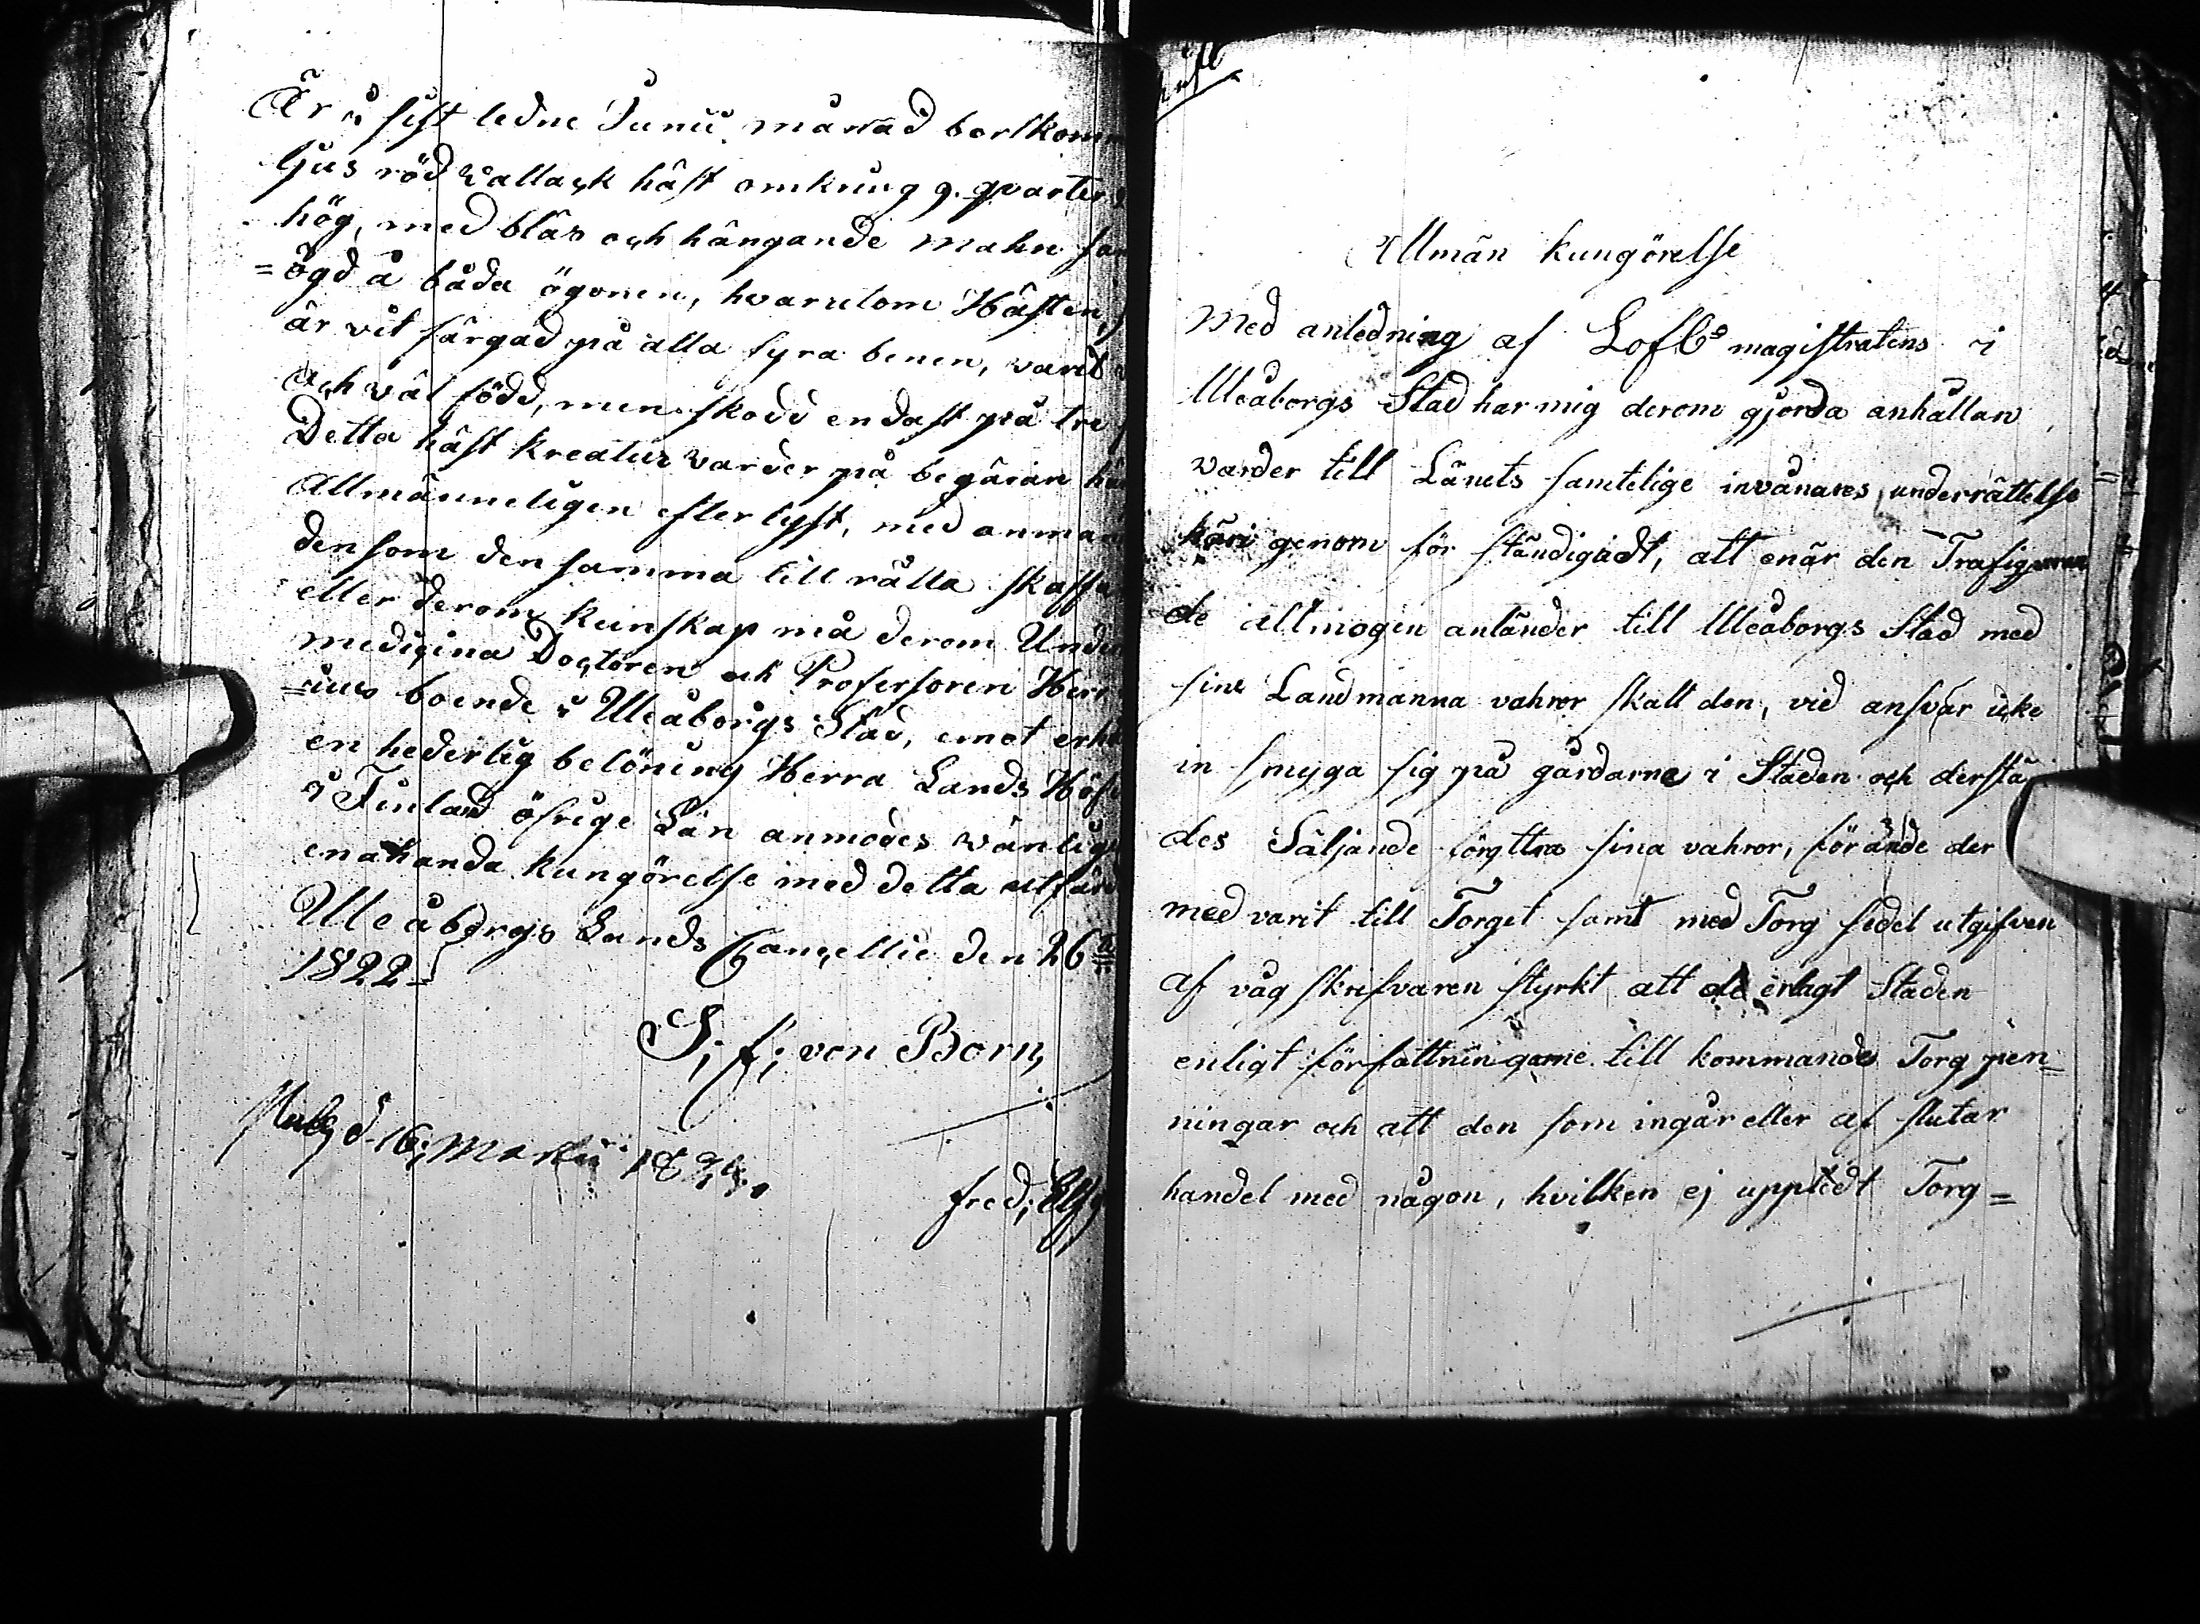 Är i sist ledne Junii månad bortkom
ljus röd Vallack häst omkring 9. qvarter
hög, med bläs och hängande Mahn
=ögd å båda ögonen, hvarutom Hästen,
är vit färgad på alla fyra benen, varit
och väl född, men skodd endast på tre
Detta häst kreatur varder på begäran
Allmänneligen efterlyst, med anma
den som den samma till rätta skaffa
eller derom kunskap må derom Und
medicina Doctoren och Professoren Herr
=ius boende i Uleåborgs Stad, emot erh
en hederlig belöning Herra Lands Höf
i Finland öfrige Län anmodes vänlig
enahanda kungörelse med detta utfär
Uleåborgs Lands Cancellie den 26
1822
S; f; von Born,
d. 16; Martii
fred;
Allmän kungörelse
Med anledning af Lofl magistratens i
Uleåborgs Stad har mig derom gjorda anhållan
varder till Länets samtelige invånares underrättelse
häri genom för ständigadt, att enär den Trafiqueran
de allmogen anländer till Uleåborgs Stad med
sine Landmanna vahror skall den, vid ansvar icke
in smyga sig på gårdarne i Staden och derstä
des Säljande föryttra sina vahror, för ände der
med varit till Torget samt med Torg sedel utgifven
af våg skrifvaren styrkt att de erlagt Staden
enligt författningarne till kommande Torg pen=
ningar och att den som ingår eller af slutar
handel med någon, hvilken ej upptedt Torg=